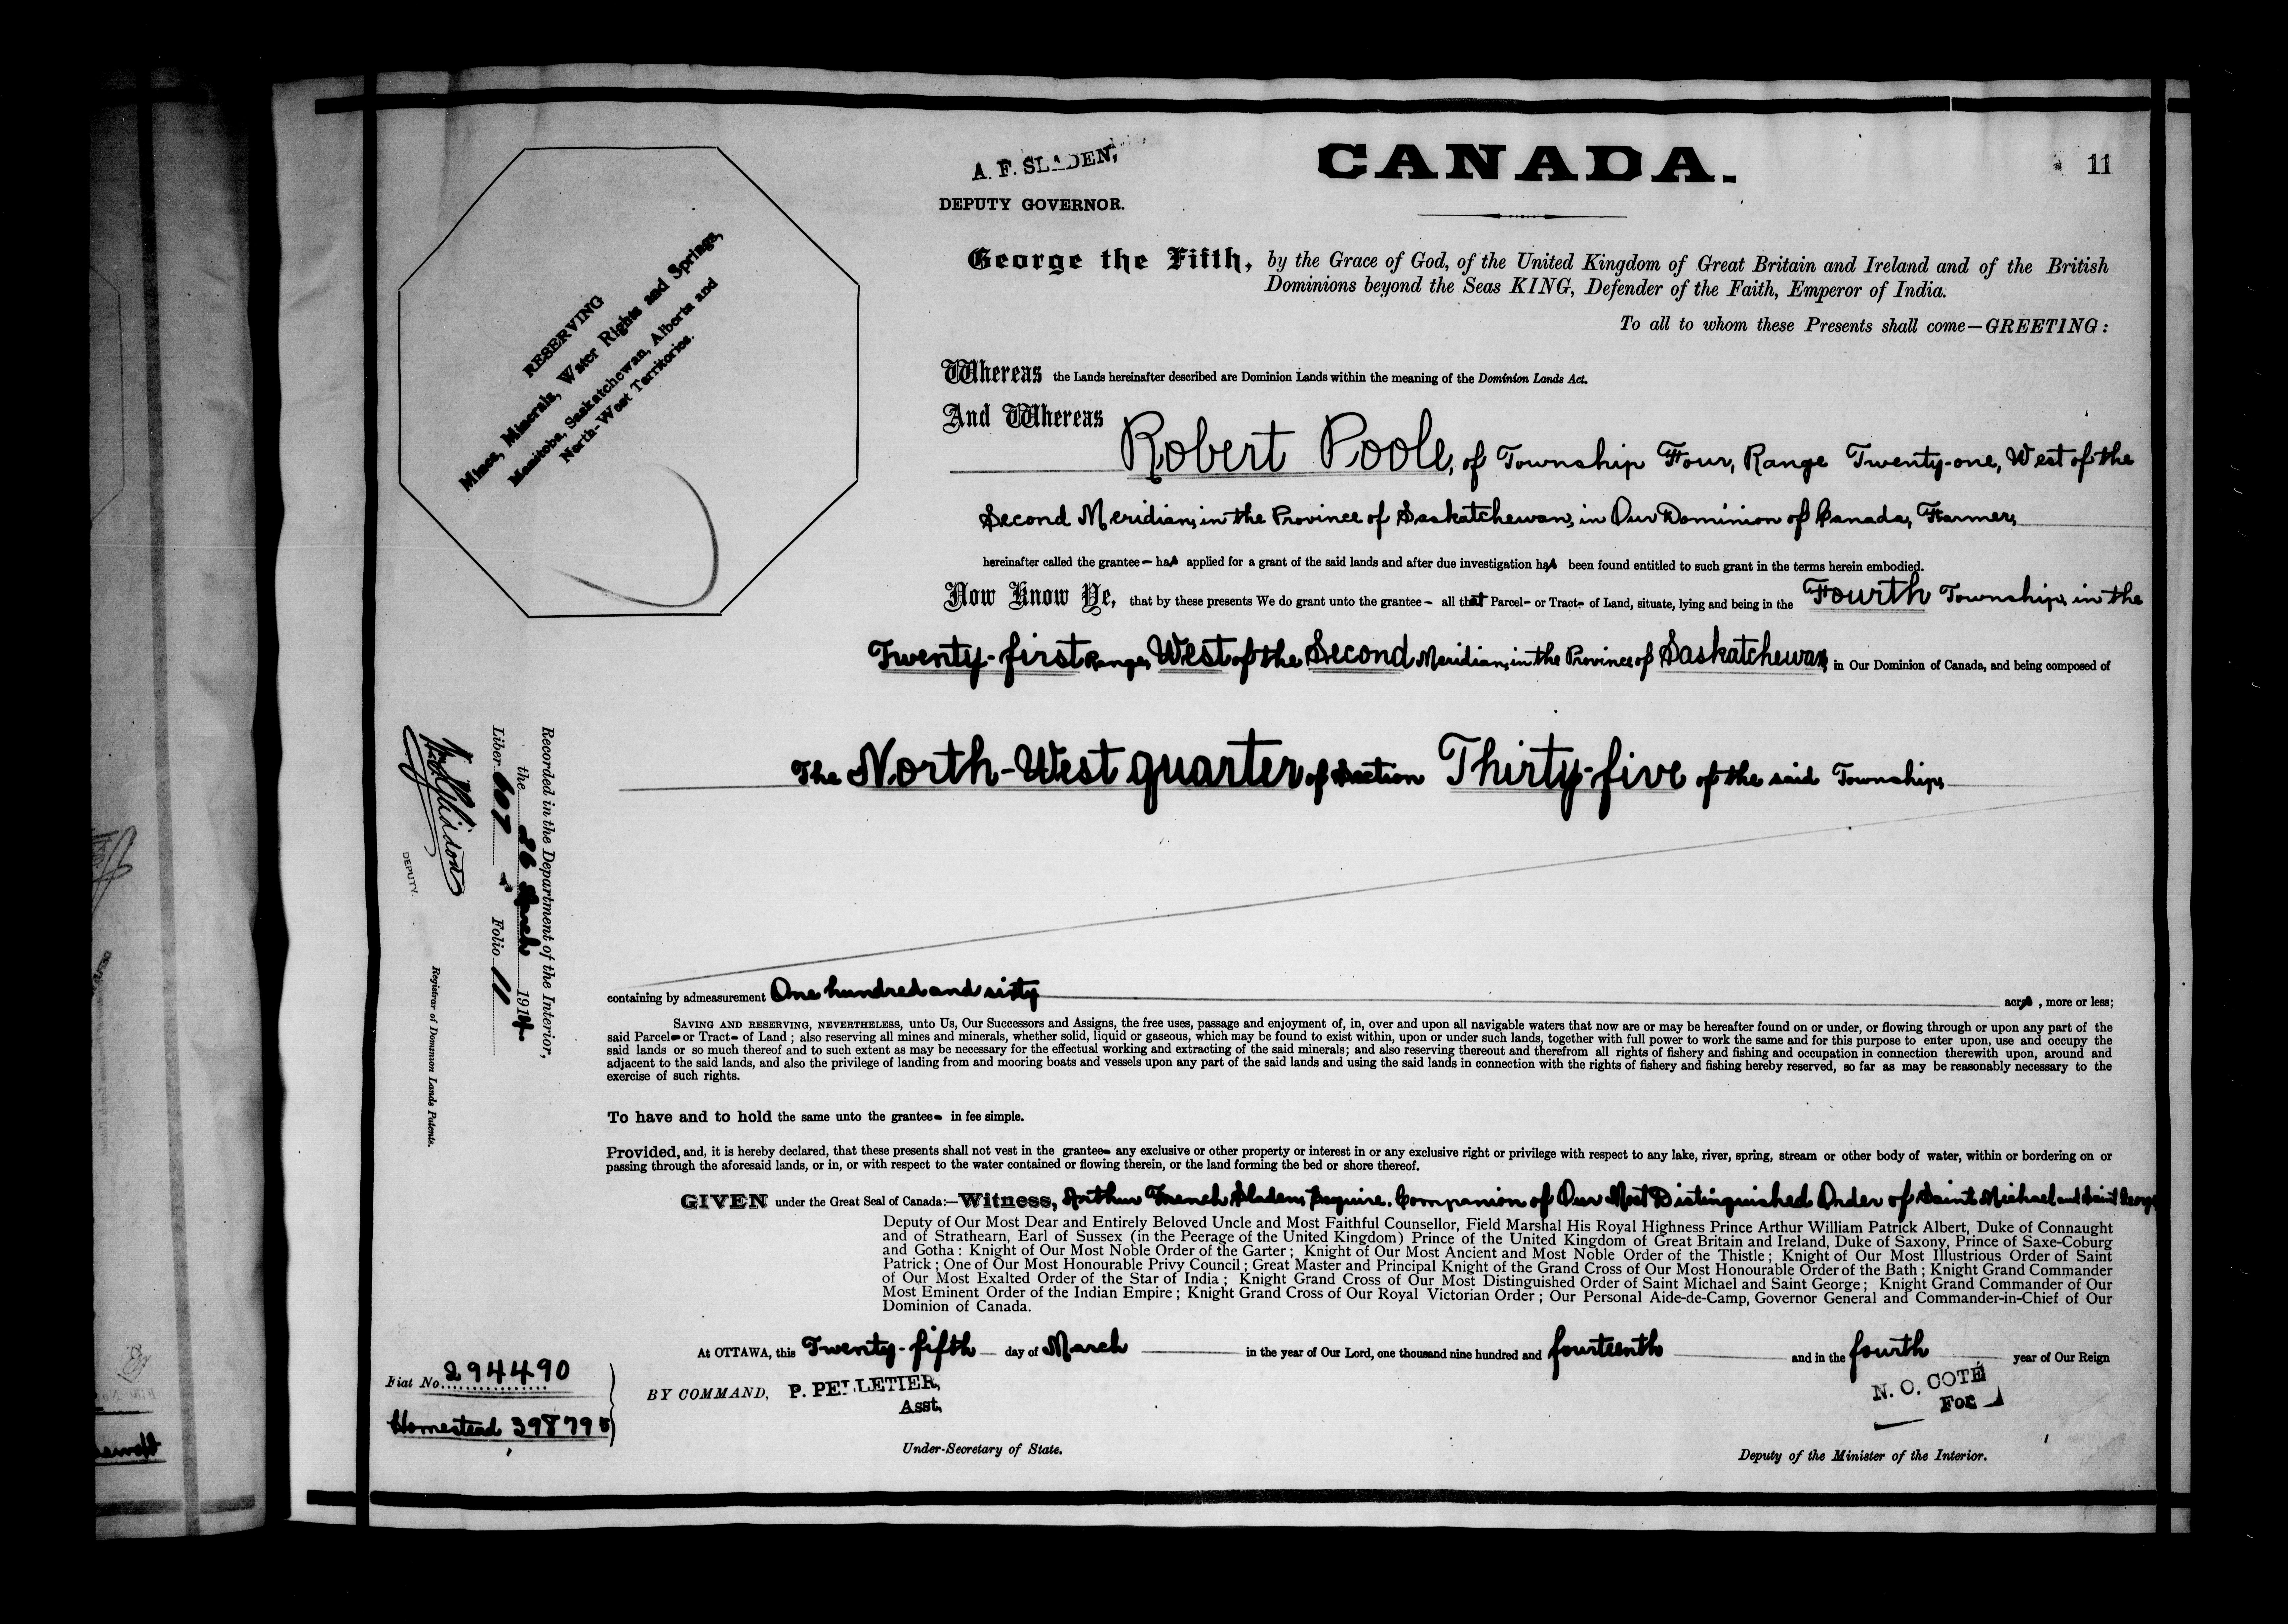 CANADA.
11
A. F. SLADEN,
DEPUTY GOVERNOR.
RESERVING
Mines, Minerals, Water Rights and Springs,
Manitoba, Saskatchewan, Alberta and
North-West Territories.
George the Fifth, by the Grace of God, of the United Kingdom of Great Britain and Ireland and of the British
Dominions beyond the Seas KING, Defender of the Faith, Emperor of India.
To all to whom these Presents shall come—GREETING:
Whereas the Lands hereinafter described are Dominion Lands within the meaning of the Dominion Lands Act.
And Whereas
Robert Poole, of Township Four, Range Twenty-one, West of the
Second Meridian, in the Province of Saskatchewan, in Our Dominion of Canada, Farmer,
hereinafter called the grantee – has applied for a grant of the said lands and after due investigation has been found entitled to such grant in the terms herein embodied.
Now Know Ye, that by these presents We do grant unto the grantee – all that Parcel- or Tract- of Land, situate, lying and being in the Fourth Township, in the
Twenty-first Range, West of the Second Meridian, in the Province of Saskatchewan, in Our Dominion of Canada, and being composed of
The North-West quarter of Section Thirty-five of the said Township,
Recorded in the Department of the Interior,
the 26 March 1914
Liber 607 Folio 11
DEPUTY.
Registrar of Dominion Lands Patents.
containing by admeasurement One hundred and sixty acres, more or less;
SAVING AND RESERVING, NEVERTHELESS, unto Us, Our Successors and Assigns, the free uses, passage and enjoyment of, in, over and upon all navigable waters that now are or may be hereafter found on or under, or flowing through or upon any part of the
said Parcel- or Tract- of Land ; also reserving all mines and minerals, whether solid, liquid or gaseous, which may be found to exist within, upon or under such lands, together with full power to work the same and for this purpose to enter upon, use and occupy the
said lands or so much thereof and to such extent as may be necessary for the effectual working and extracting of the said minerals; and also reserving thereout and therefrom all rights of fishery and fishing and occupation in connection therewith upon, around and
adjacent to the said lands, and also the privilege of landing from and mooring boats and vessels upon any part of the said lands and using the said lands in connection with the rights of fishery and fishing hereby reserved, so far as may be reasonably necessary to the
exercise of such rights.
To have and to hold the same unto the grantee- in fee simple.
Provided, and, it is hereby declared, that these presents shall not vest in the grantee- any exclusive or other property or interest in or any exclusive right or privilege with respect to any lake, river, spring, stream or other body of water, within or bordering on or
passing through the aforesaid lands, or in, or with respect to the water contained or flowing therein, or the land forming the bed or shore thereof.
GIVEN under the Great Seal of Canada:—Witness, Arthur French Sladen, Esquire, Companion of Our Most Distinguished Order of Saint Michael and Saint George
Deputy of Our Most Dear and Entirely Beloved Uncle and Most Faithful Counsellor, Field Marshal His Royal Highness Prince Arthur William Patrick Albert, Duke of Connaught
and of Strathearn, Earl of Sussex (in the Peerage of the United Kingdom) Prince of the United Kingdom of Great Britain and Ireland, Duke of Saxony, Prince of Saxe-Coburg
and Gotha : Knight of Our Most Noble Order of the Garter ; Knight of Our Most Ancient and Most Noble Order of the Thistle ; Knight of Our Most Illustrious Order of Saint
Patrick ; One of Our Most Honourable Privy Council ; Great Master and Principal Knight of the Grand Cross of Our Most Honourable Order of the Bath ; Knight Grand Commander
of Our Most Exalted Order of the Star of India ; Knight Grand Cross of Our Most Distinguished Order of Saint Michael and Saint George ; Knight Grand Commander of Our
Most Eminent Order of the Indian Empire ; Knight Grand Cross of Our Royal Victorian Order ; Our Personal Aide-de-Camp, Governor General and Commander-in-Chief of Our
Dominion of Canada.
At OTTAWA, this Twenty-fifth day of March in the year of Our Lord, one thousand nine hundred and fourteenth and in the fourth year of Our Reign
Fiat No. 294490
Homestead 398795
BY COMMAND, P. PELLETIER,
Asst,
Under-Secretary of State.
N. O. COTÉ
For
Deputy of the Minister of the Interior.